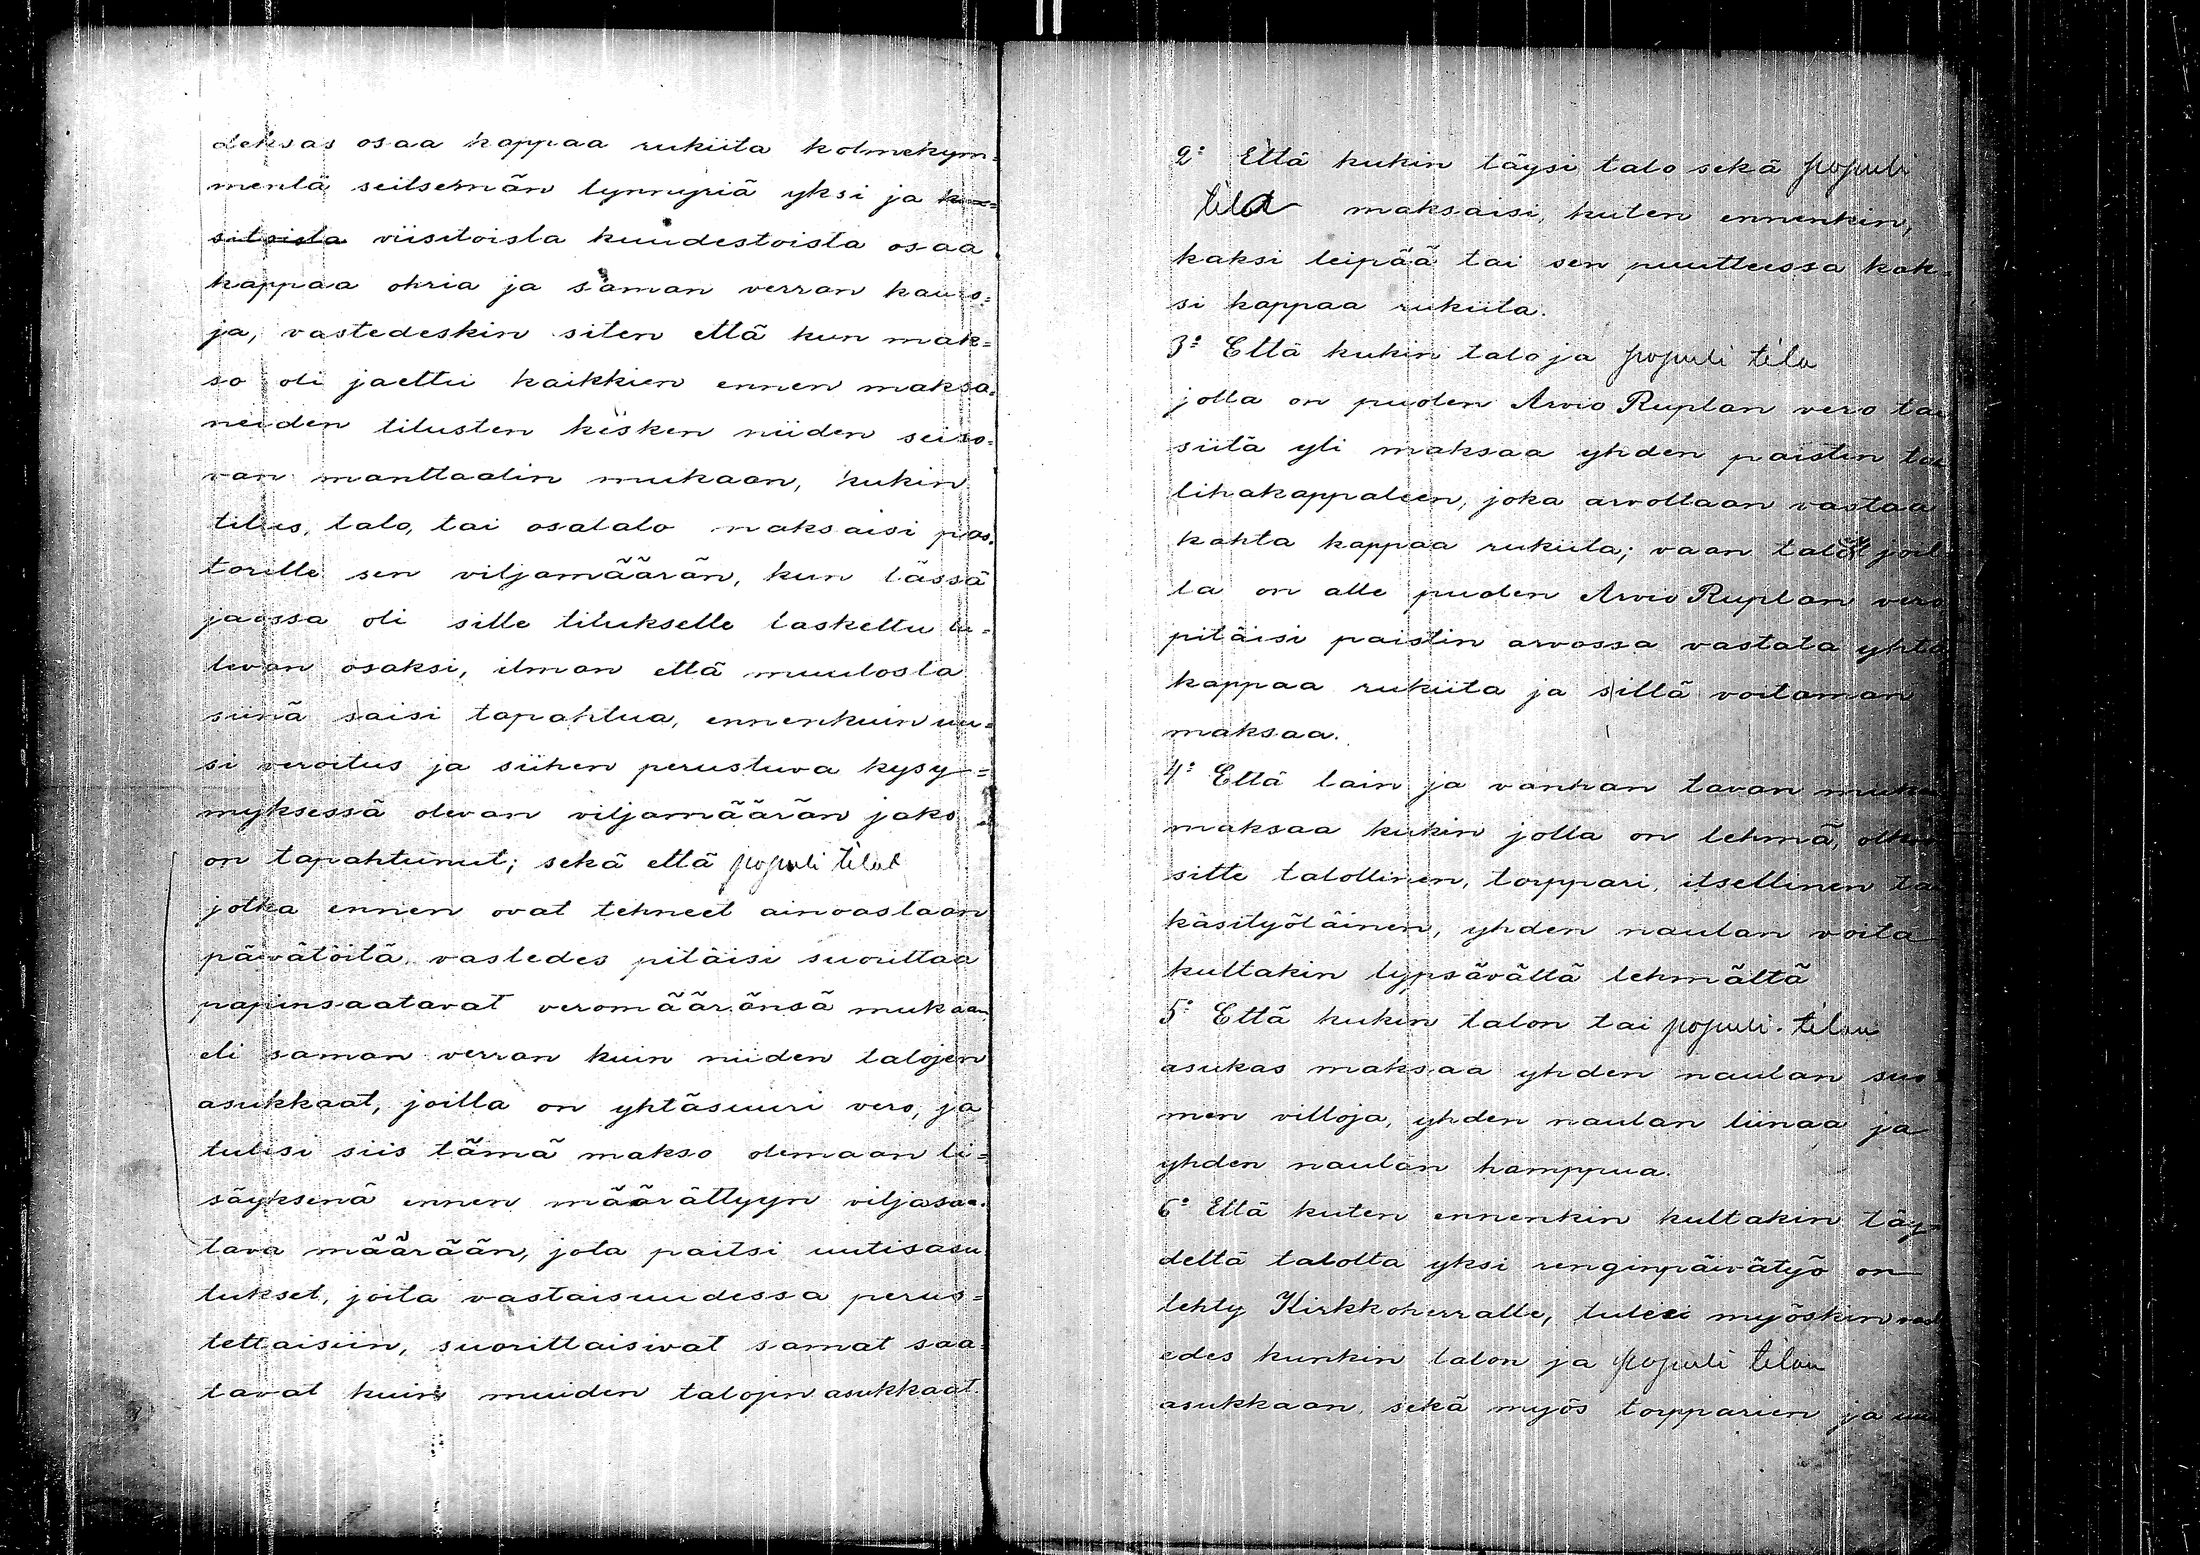 deksas osaa kappaa rukiita kolmekym=
mentä seitsemän tynnyriä yksi ja
sitsista viisitoista kuudestoista osaa
kappaa ohria ja saman verran kauro=
ja, vastedeskin siten että kun mak=
so oli jaettu kaikkien ennen maksa=
neiden tilusten kesken niiden seiso=
van manttaalin mukaan, kukin
tilus, talo, tai osatalo maksaisi pas=
torille sen viljamäärän, kun tässä
jaossa oli sille tilukselle laskettu tu=
levan osaksi, ilman että muutosta
siinä saisi tapahtua, ennenkuin uu=
si veroitus ja siihen perustuva kysy=
myksessä olevan viljamäärän jako
on tapahtunut; sekä että populi tilat
jotka ennen ovat tehneet ainoastaan
päivätöitä, vastedes pitäisi suorittaa
papinsaatavat veromääränsä mukaan
eli saman verran kuin niiden talojen
asukkaat, joilla on yhtäsuuri vero, ja
tulisi siis tämä makso olemaan li=
säyksenä ennen määrättyyn viljasaa=
tava määrään, jota paitsi uutisasu
tukset, joita vastaisuudessa perus=
tettaisiin, suorittaisivat samat saa=
tavat kuin muiden talojen asukkaat.
2:o Että kukin täysi talo sekä populi
tilat maksaisi, kuten ennenkin,
kaksi leipää tai sen puutteessa kak=
si kappaa rukiita.
3:o Että kukin talo ja populi tila
jolla on puolen Arvio Ruplan vero tai
siitä yli maksaa yhden paistin tai
lihakappaleen, joka arvoltaan vastaa
kahta kappaa rukiita; vaan talot joil
la on alle puolen Arvio Ruplan vero
pitäisi paistin arvossa vastata yhtä
kappaa rukiita ja sillä voitaman
maksaa.
4:o Että lain ja vanhan tavan mukaan
maksaa kukin jolla on lehmä, olkoon
sitte talollinen, torppari, itsellinen tai
käsityöläinen, yhden naulan voita
kultakin lypsävältä lehmältä
5:o Että kukin talon tai populi-tilan
asukas maksaa yhden naulan suo
men villoja, yhden naulan liinaa ja
yhden naulan hamppua.
6:o Että kuten ennenkin kultakin täy=
deltä talolta yksi renginpäivätyö on
tehty Kirkkoherralle, tulee myöskin vast
edes kunkin talon ja populi tilan
asukkaan, sekä myös torpparien ja uu